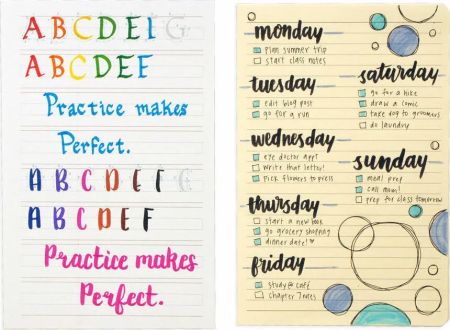 ABCDEF G
ABCDEF
Practice makes
Perfect.
A B C D E F
A B C D E F
Practice makes
Perfect.
monday
plan summer trip
start class notes
tuesday
edit blog post
go for a run
wednesday
eye doctor appt
write that letter!
pick flowers to press
thursday
start a new book
go grocery shopping
dinner date! ♥
friday
study @ café
chapter 7 notes
saturday
go for a hike
draw a comic
take dog to groomers
do laundry
sunday
meal prep
call mom!
prep for class tomorrow